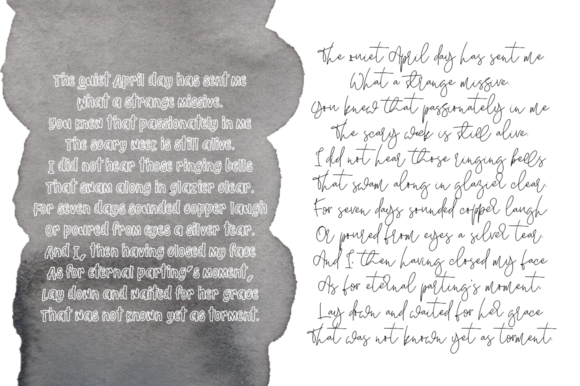 The quiet April day has sent me
What a strange missive.
You knew that passionately in me
The scary week is still alive.
I did not hear those ringing bells
That swam along in glazier clear.
For seven days sounded copper laugh
Or poured from eyes a silver tear.
And I, then having closed my face
As for eternal parting's moment,
Lay down and waited for her grace
That was not known yet as torment.
The quiet April day has sent me
What a strange missive.
You knew that passionately in me
The scary week is still alive.
I did not hear those ringing bells
That swam along in glazier clear.
For seven days sounded copper laugh
Or poured from eyes a silver tear.
And I, then having closed my face
As for eternal parting's moment,
Lay down and waited for her grace
That was not known yet as torment.